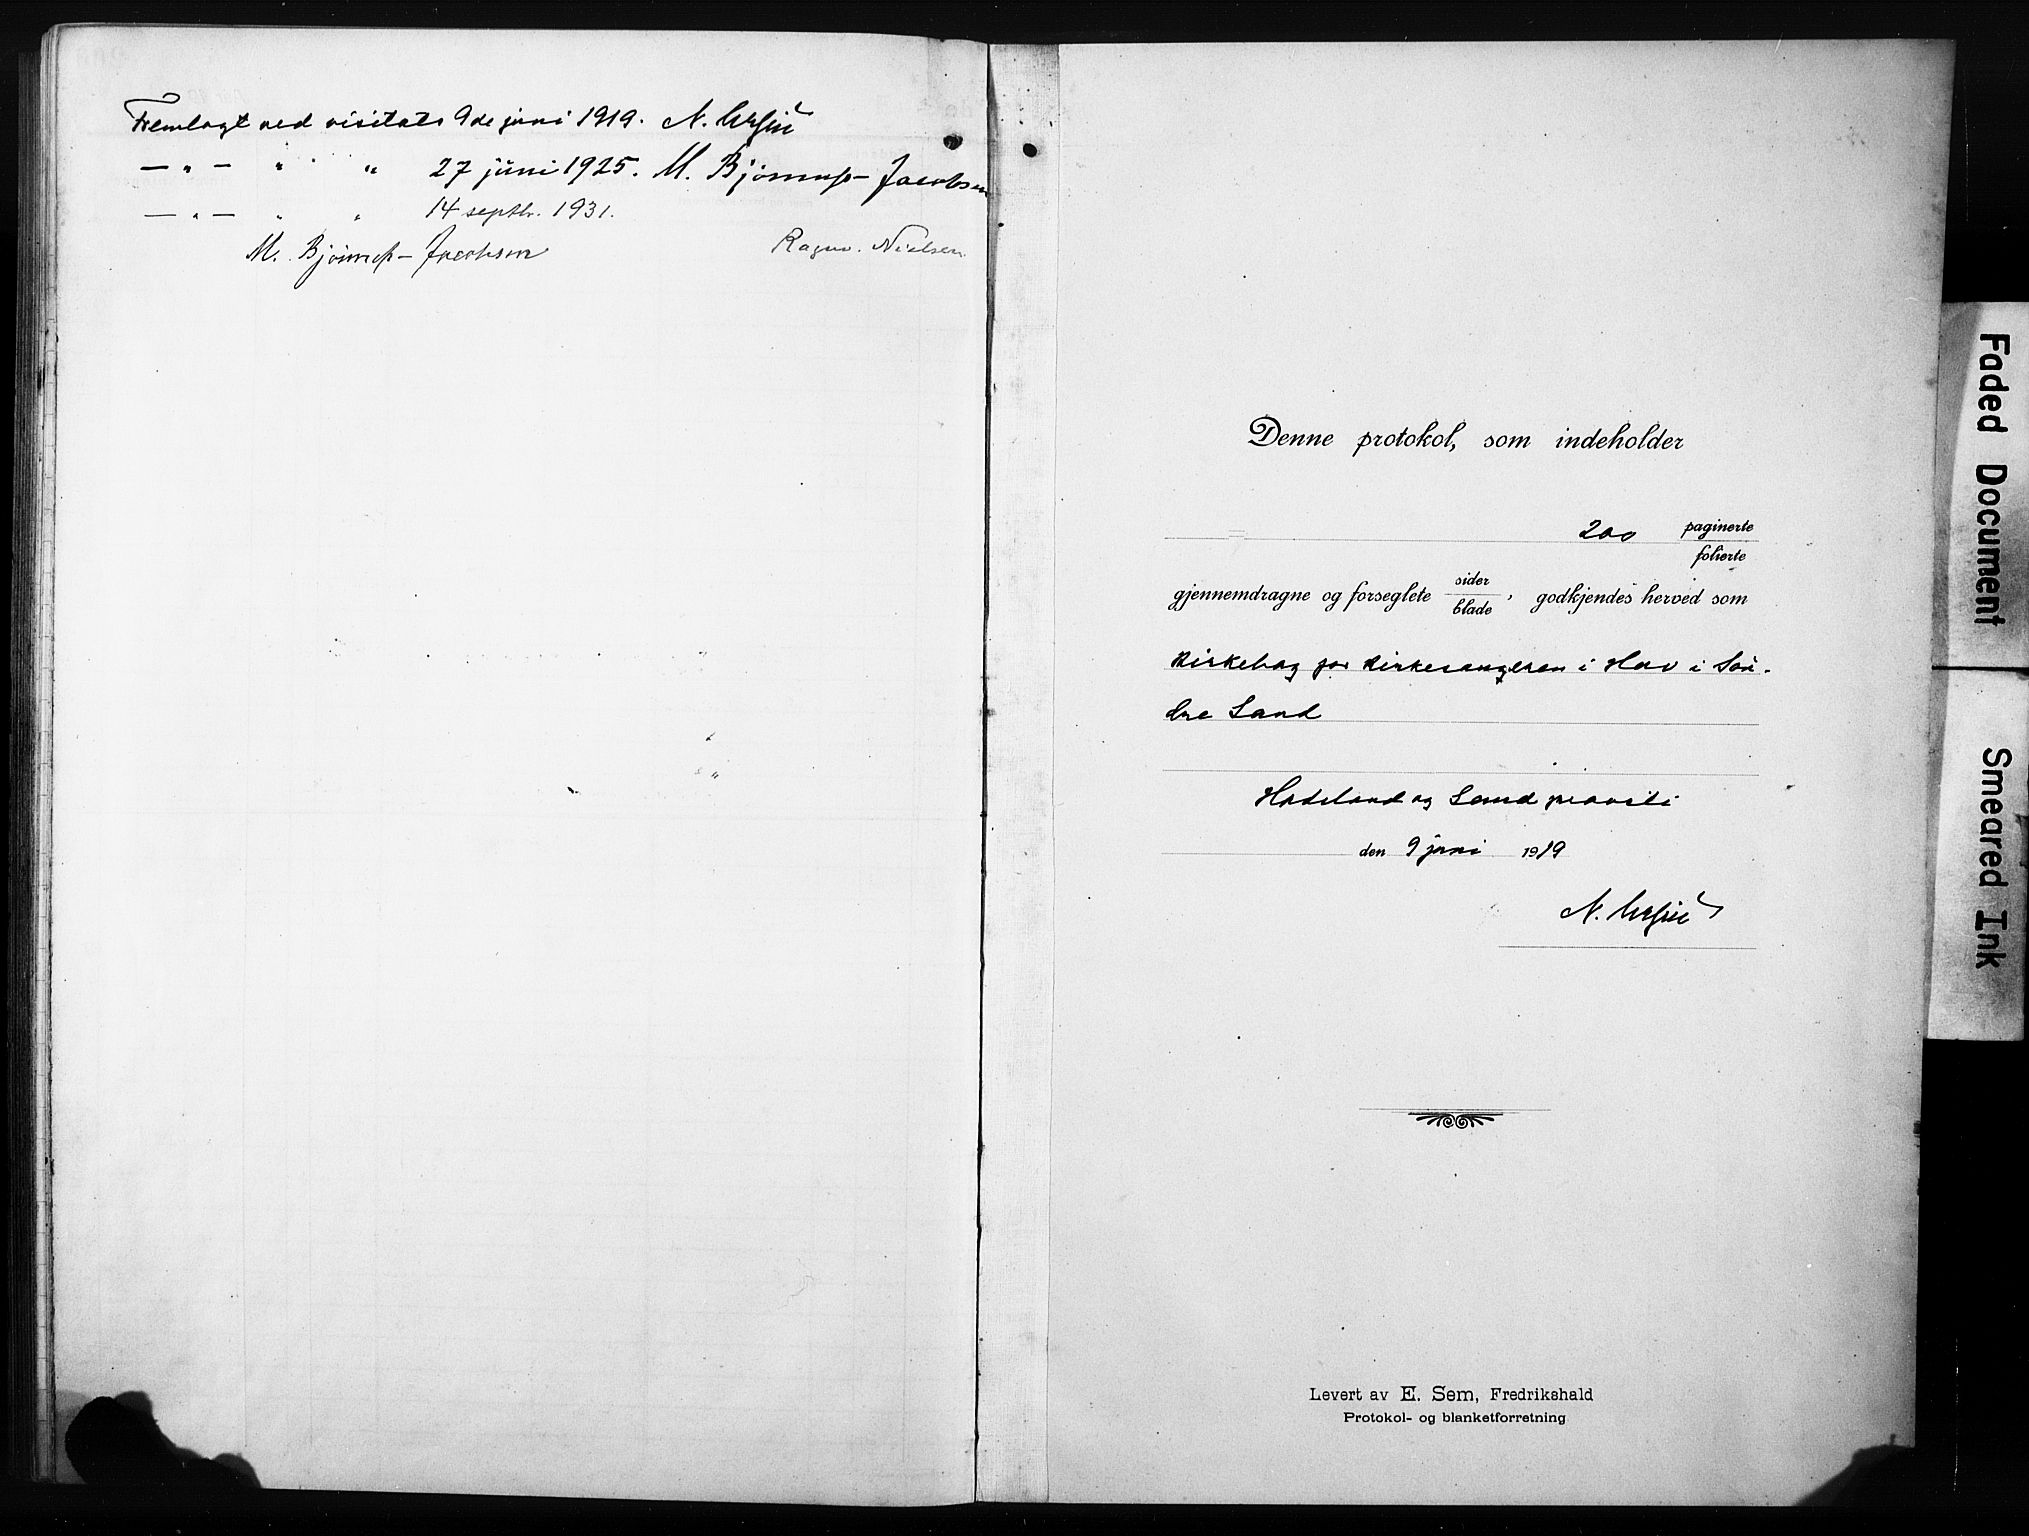 Fremlagt ved visitats 9de juni 1919. N. Ursin
— " — " " 27 juni 1925. M. Bjønnes-Jacobsen
— " — " " 14 septbr. 1931.
M. Bjønnes-Jacobsen Ragnv. Nielsen
Denne protokol, som indeholder
200 paginerte
folierte
gjennemdragne og forseglete sider
blade, godkjendes herved som
kirkebog for kirkesangeren i Hov i Søn-
dre Land
Hadeland og Land prosti
den 9 juni 1919
N. Ursin
Levert av E. Sem, Fredrikshald
Protokol- og blanketforretning
Faded Document
Smeared Ink